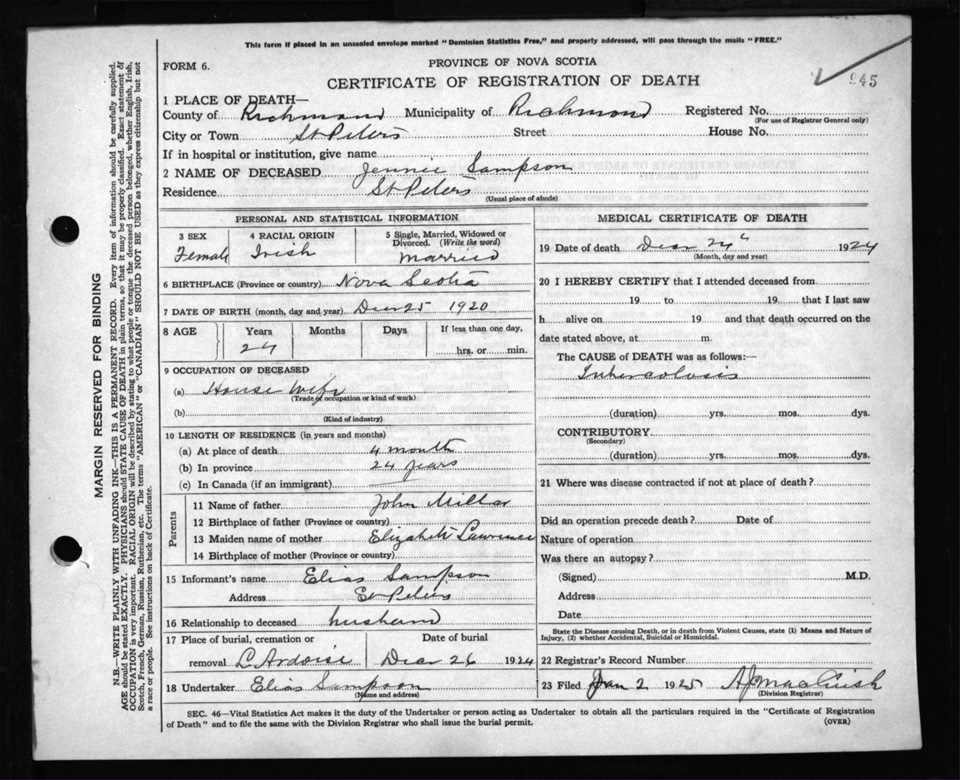 This form if placed in an unsealed envelope marked "Dominion Statistics Free," and properly addressed, will pass through the mails "FREE."
FORM 6.
PROVINCE OF NOVA SCOTIA
CERTIFICATE OF REGISTRATION OF DEATH
945
1 PLACE OF DEATH—
County of Richmond Municipality of Richmond Registered No.
(For use of Registrar General only)
City or Town St Peters Street House No.
If in hospital or institution, give name
2 NAME OF DECEASED Jennie Sampson
Residence St Peters
(Usual place of abode)
PERSONAL AND STATISTICAL INFORMATION
3 SEX 4 RACIAL ORIGIN 5 Single, Married, Widowed or Divorced. (Write the word)
Female Irish Married
6 BIRTHPLACE (Province or country) Nova Scotia
7 DATE OF BIRTH (month, day and year) Dec 25 1920
8 AGE Years Months Days If less than one day,
24 hrs. or min.
9 OCCUPATION OF DECEASED
(a) House Wife
(Trade of occupation or kind of work)
(b)
(Kind of industry)
10 LENGTH OF RESIDENCE (in years and months)
(a) At place of death 4 month
(b) In province 24 years
(c) In Canada (if an immigrant)
Parents
11 Name of father John Millar
12 Birthplace of father (Province or country)
13 Maiden name of mother Elizabeth Lawrence
14 Birthplace of mother (Province or country)
15 Informant's name Elias Sampson
Address St Peters
16 Relationship to deceased husband
17 Place of burial, cremation or Date of burial
removal L'Ardoise Dec 26 1924
18 Undertaker Elias Sampson
(Name and address)
MEDICAL CERTIFICATE OF DEATH
19 Date of death Dec 24 1924
(Month, day and year)
20 I HEREBY CERTIFY that I attended deceased from
19 to 19 that I last saw
h alive on 19 and that death occurred on the
date stated above, at m.
The CAUSE of DEATH was as follows:—
Tuberculosis
(duration) yrs. mos. dys.
CONTRIBUTORY
(Secondary)
(duration) yrs. mos. dys.
21 Where was disease contracted if not at place of death?
Did an operation precede death? Date of
Nature of operation
Was there an autopsy?
(Signed) M.D.
Address
Date
State the Disease causing Death, or in death from Violent Causes, state (1) Means and Nature of
Injury, (2) whether Accidental, Suicidal or Homicidal.
22 Registrar's Record Number
23 Filed Jan 2 1925
(Division Registrar)
SEC. 46—Vital Statistics Act makes it the duty of the Undertaker or person acting as Undertaker to obtain all the particulars required in the "Certificate of Registration
of Death" and to file the same with the Division Registrar who shall issue the burial permit.
(OVER)
MARGIN RESERVED FOR BINDING
N.B.—WRITE PLAINLY WITH UNFADING INK—THIS IS A PERMANENT RECORD. Every item of information should be carefully supplied.
AGE should be stated EXACTLY. PHYSICIANS should STATE CAUSE OF DEATH in plain terms, so that it may be properly classified. Exact statement of
OCCUPATION is very important. RACIAL ORIGIN will be described by stating to what people or tongue the deceased person belonged, whether English, Irish,
Scotch, French, German, Russian, Ruthenian, etc. The terms "AMERICAN" or "CANADIAN" SHOULD NOT BE USED as they express citizenship but not
a race or people. See instructions on back of Certificate.